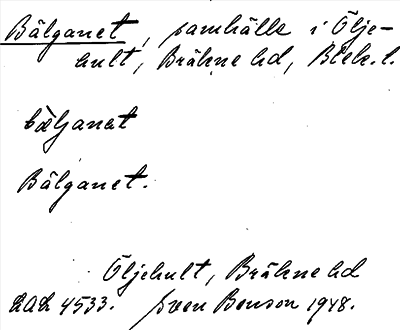 Bälganet, samhälle i Ölje-
hult, Bräkne hd, Blek. l.
bæljanet
Bälganet.
Öljehult, Bräkne hd
LAL 4533. Sven Benson 1948.